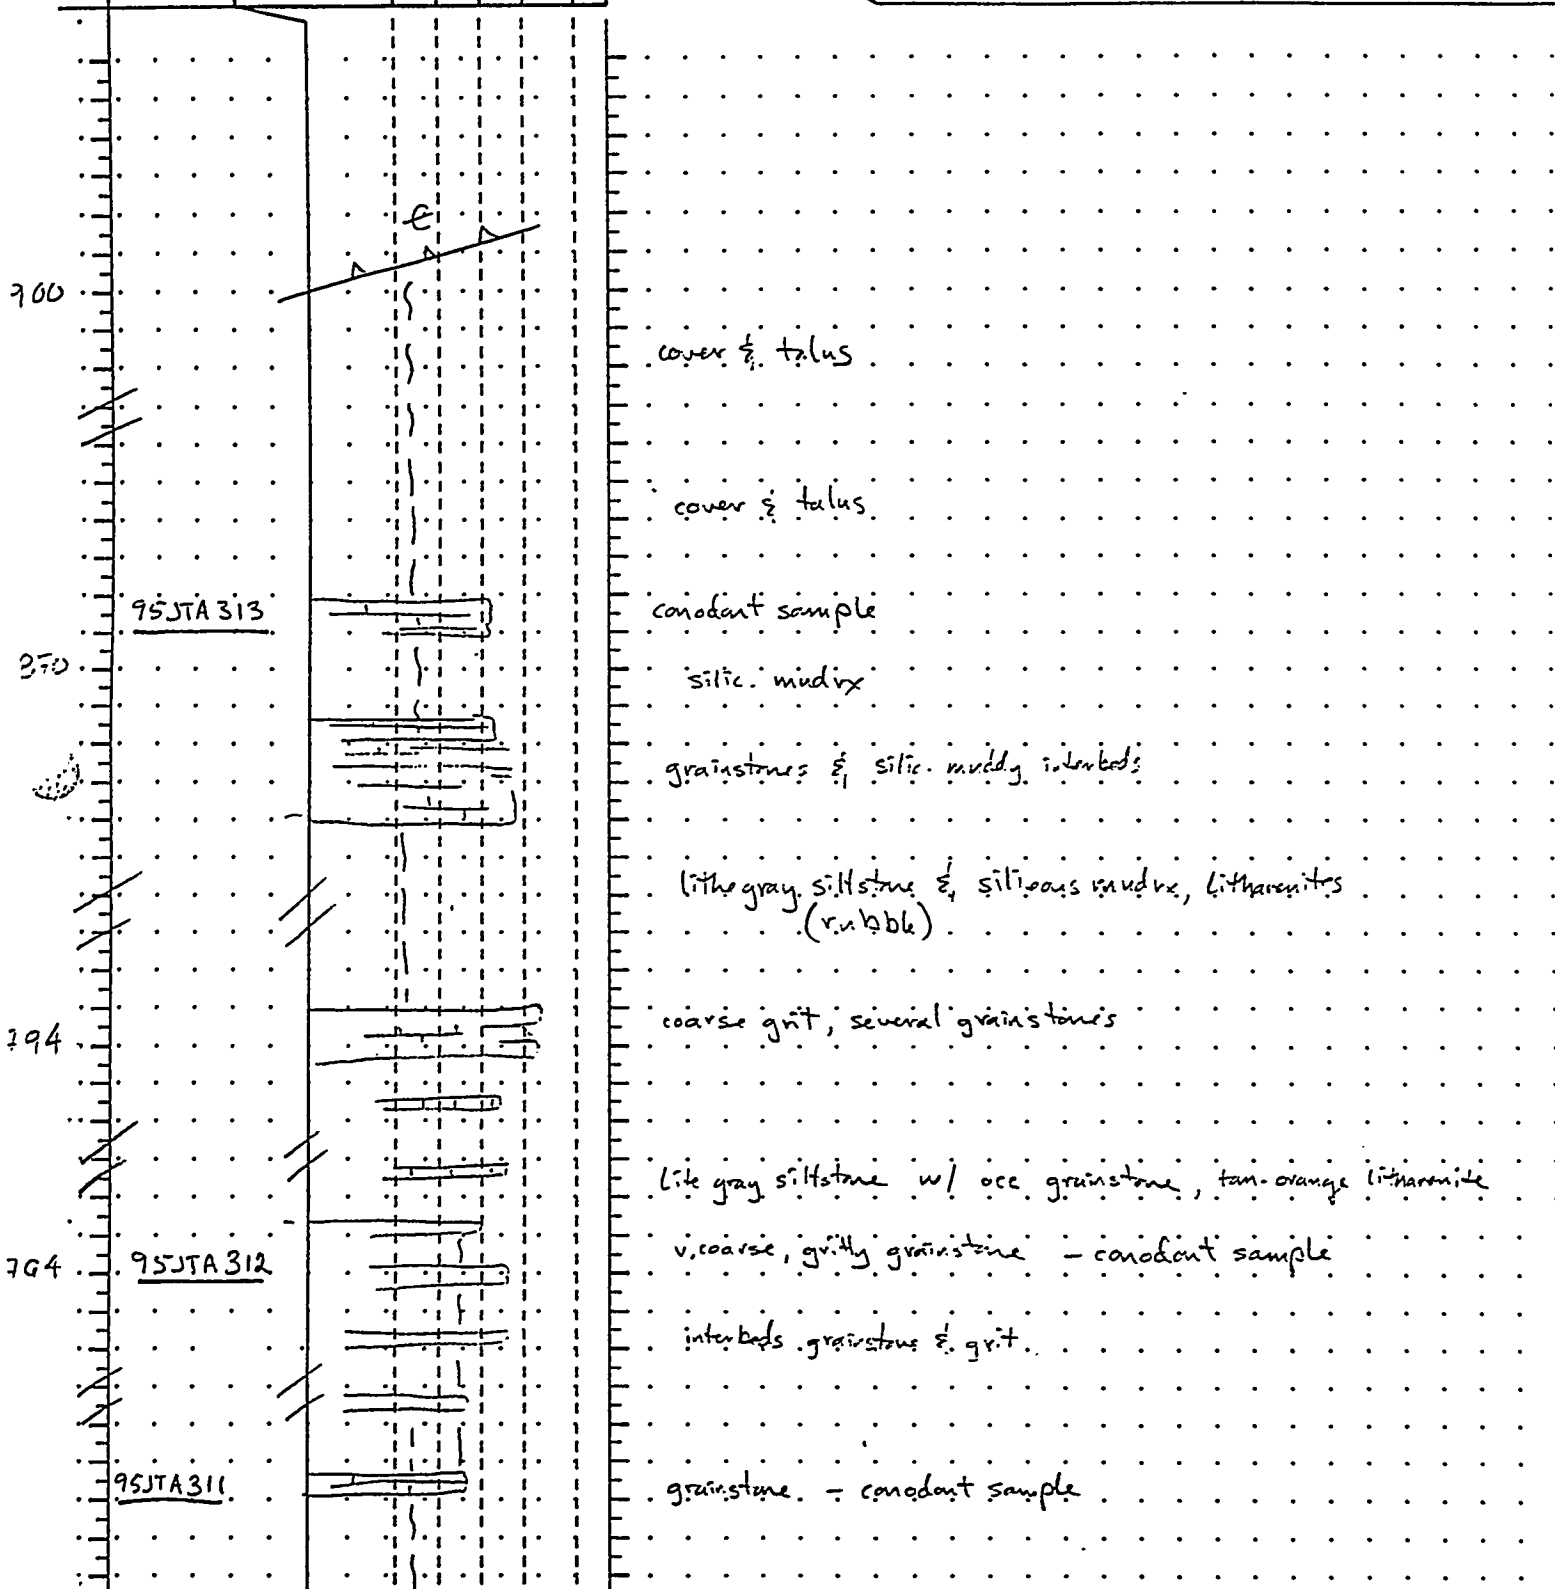 Ꞓ
900
cover & talus
cover & talus
95JTA313 conodont sample
870
silic. mudrx
grainstones & silic. muddy interbeds
lithe gray siltstone & siliceous mudrx, litharenites
(rubble)
coarse grit, several grainstones
794
lite gray siltstone w/ occ grainstone, tan-orange litharenite
v. coarse, gritty grainstone - conodont sample
764 95JTA312
interbeds grainstone & grit
95JTA311 grainstone - conodont sample